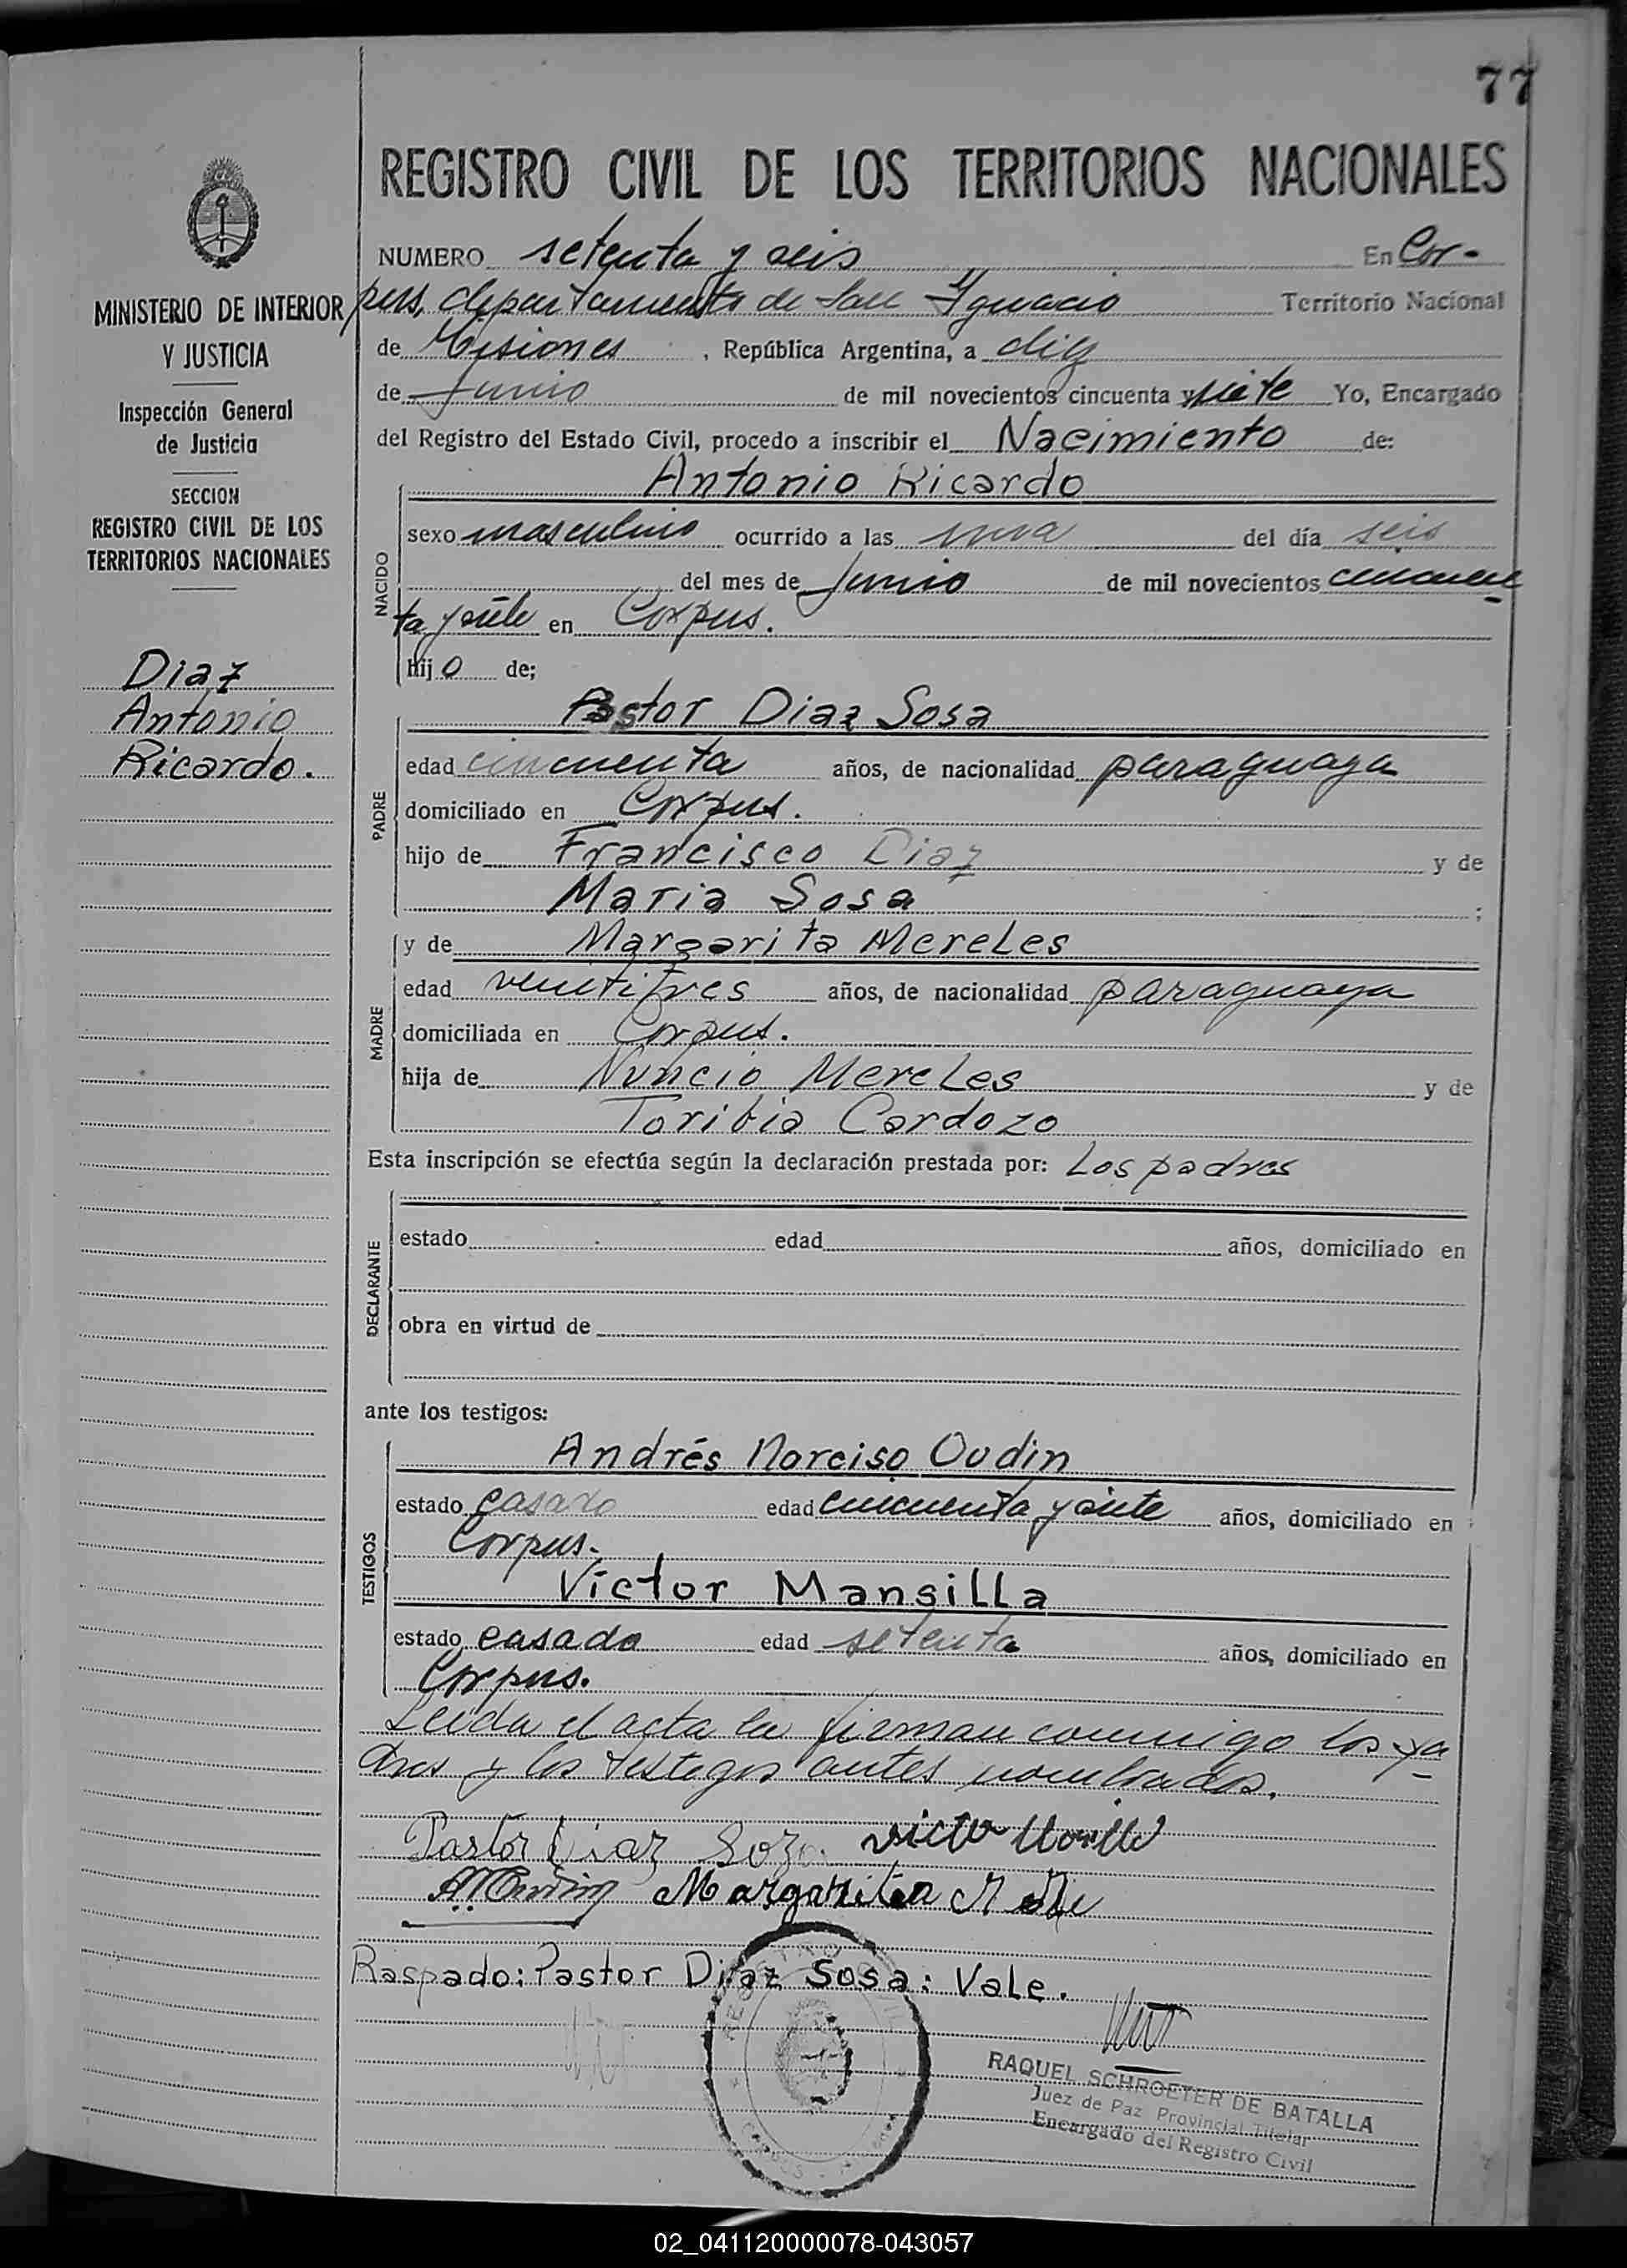 77
REGISTRO CIVIL DE LOS TERRITORIOS NACIONALES
NUMERO setenta y seis En Cor-
pus, departamento de San Ygnacio Territorio Nacional
de Misiones, República Argentina, a diez
de Junio de mil novecientos cincuenta y siete Yo, Encargado
del Registro del Estado Civil, procedo a inscribir el Nacimiento de:
MINISTERIO DE INTERIOR
Y JUSTICIA
Inspección General
de Justicia
SECCION
REGISTRO CIVIL DE LOS
TERRITORIOS NACIONALES
Diaz
Antonio
Ricardo.
NACIDO
Antonio Ricardo
sexo masculino ocurrido a las una del día seis
del mes de Junio de mil novecientos cincuen-
ta y siete en Corpus.
hijo de;
PADRE
Pastor Diaz Sosa
edad cincuenta años, de nacionalidad paraguaya
domiciliado en Corpus.
hijo de Francisco Diaz y de
Maria Sosa ;
MADRE
y de Margarita Mereles
edad ventitres años, de nacionalidad paraguaya
domiciliada en Corpus.
hija de Nuncio Mereles y de
Toribia Cardozo
Esta inscripción se efectúa según la declaración prestada por: Los padres
DECLARANTE
estado edad años, domiciliado en
obra en virtud de
ante los testigos:
TESTIGOS
Andrés Narciso Oudin
estado casado edad cincuenta y siete años, domiciliado en
Corpus.
Víctor Mansilla
estado casado edad setenta años, domiciliado en
Corpus.
Leida el acta la firman conmigo los pa-
dres y los testigos antes nombrados.
Pastor Diaz Soza
Margarita
Raspado: Pastor Diaz Sosa: Vale.
RAQUEL SCHROETER DE BATALLA
Juez de Paz Provincial Titular
Encargado del Registro Civil
02_041120000078-043057